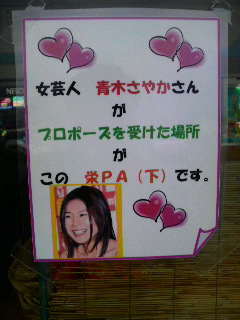 女芸人 青木さやかさん
が
プロポーズを受けた場所
が
この 栄PA(下)です。